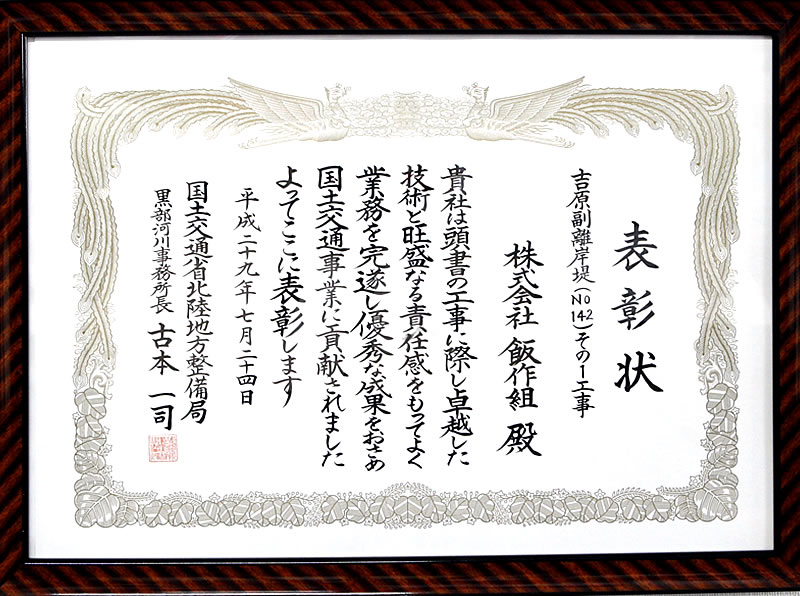 表彰状
吉原副離岸堤(No142)その1工事
株式会社 飯作組 殿
貴社は頭書の工事に際し卓越した
技術と旺盛なる責任感をもってよく
業務を完遂し優秀な成果をおさめ
国土交通事業に貢献されました
よってここに表彰します
平成二十九年七月二十四日
国土交通省北陸地方整備局
黒部河川事務所長 古本 一司